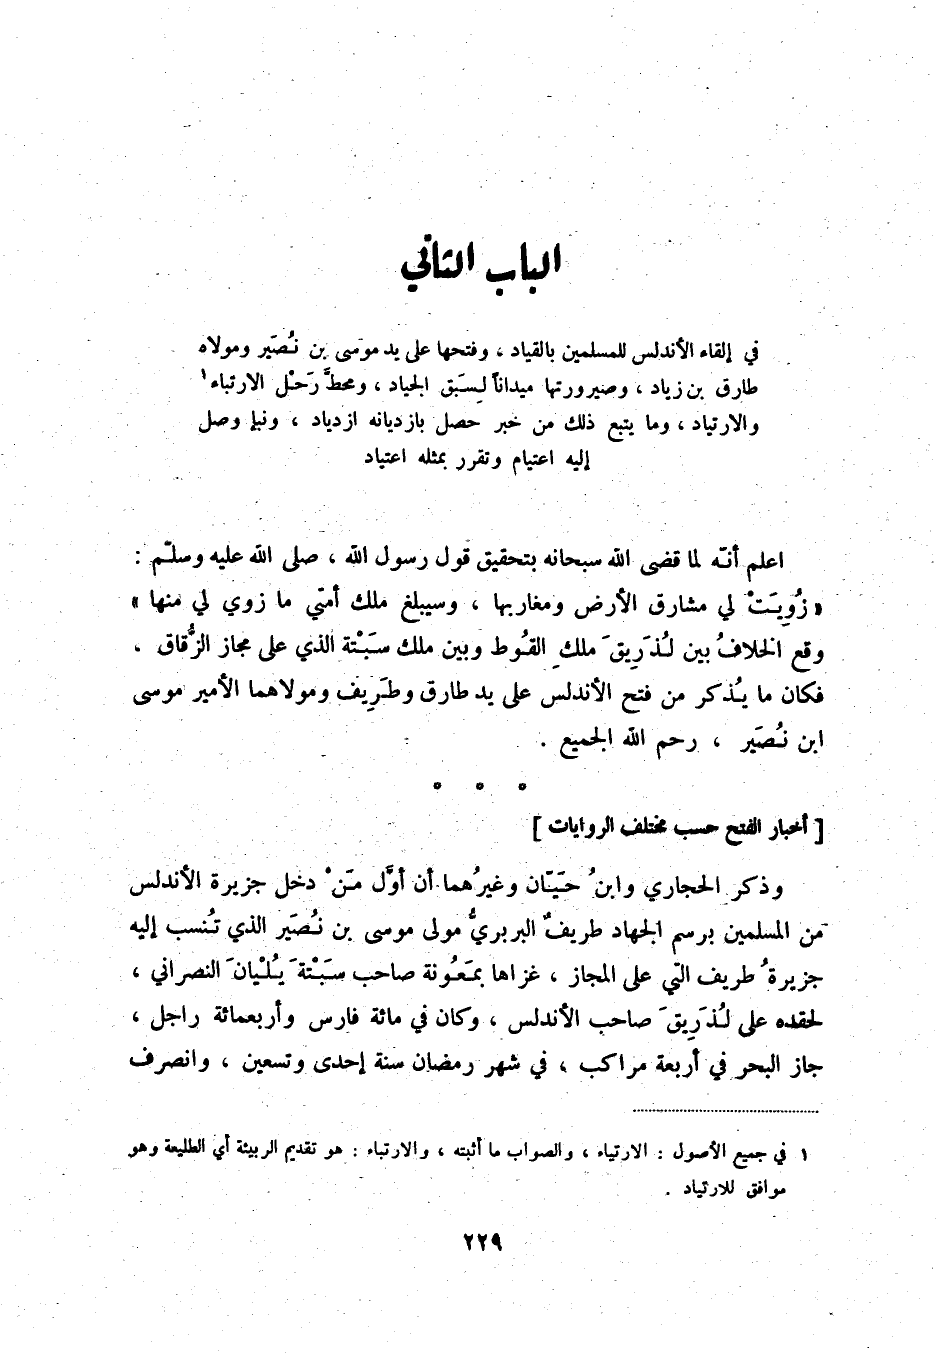 الباب الثاني
في إلقاء الأندلس للمسلمين بالقياد ، وفتحها على يد موسى بن نُصَير ومولاه
طارق بن زياد ، وصيرورتها ميداناً لسَبق الجياد ، ومحطَّ رَحْل الارتباء١
والارتياد ، وما يتبع ذلك من خبر حصل بازديانه ازدياد ، ونبإ وصل
إليه اعتيام وتقرر بمثله اعتياد
اعلم أنّه لما قضى الله سبحانه بتحقيق قول رسول الله ، صلى الله عليه وسلّم :
« زُوِيَتْ لي مشارق الأرض ومغاربها ، وسيبلغ ملك أمتي ما زوي لي منها »
وقع الخلافُ بين لُذَرِيقَ ملكِ القُوط وبين ملك سَبْتة الذي على مجاز الزُّقاق ،
فكان ما يُذكر من فتح الأندلس على يد طارق وطَرِيف ومولاهما الأمير موسى
ابن نُصَير ، رحم الله الجميع .
* * *
[ أخبار الفتح حسب مختلف الروايات ]
وذكر الحجاري وابنُ حَيّان وغيرُهما أن أوَّل مَنْ دخل جزيرة الأندلس
من المسلمين برسم الجهاد طريفٌ البربريُّ مولى موسى بن نُصَير الذي تُنسب إليه
جزيرةُ طريف التي على المجاز ، غزاها بمَعُونة صاحب سَبْتةَ يُلْيانَ النصراني ،
لحقده على لُذَرِيقَ صاحب الأندلس ، وكان في مائة فارس وأربعمائة راجل ،
جاز البحر في أربعة مراكب ، في شهر رمضان سنة إحدى وتسعين ، وانصرف
١ في جميع الأصول : الارتياء ، والصواب ما أثبته ، والارتباء : هو تقديم الربيئة أي الطليعة وهو
موافق للارتياد .
٢٢٩